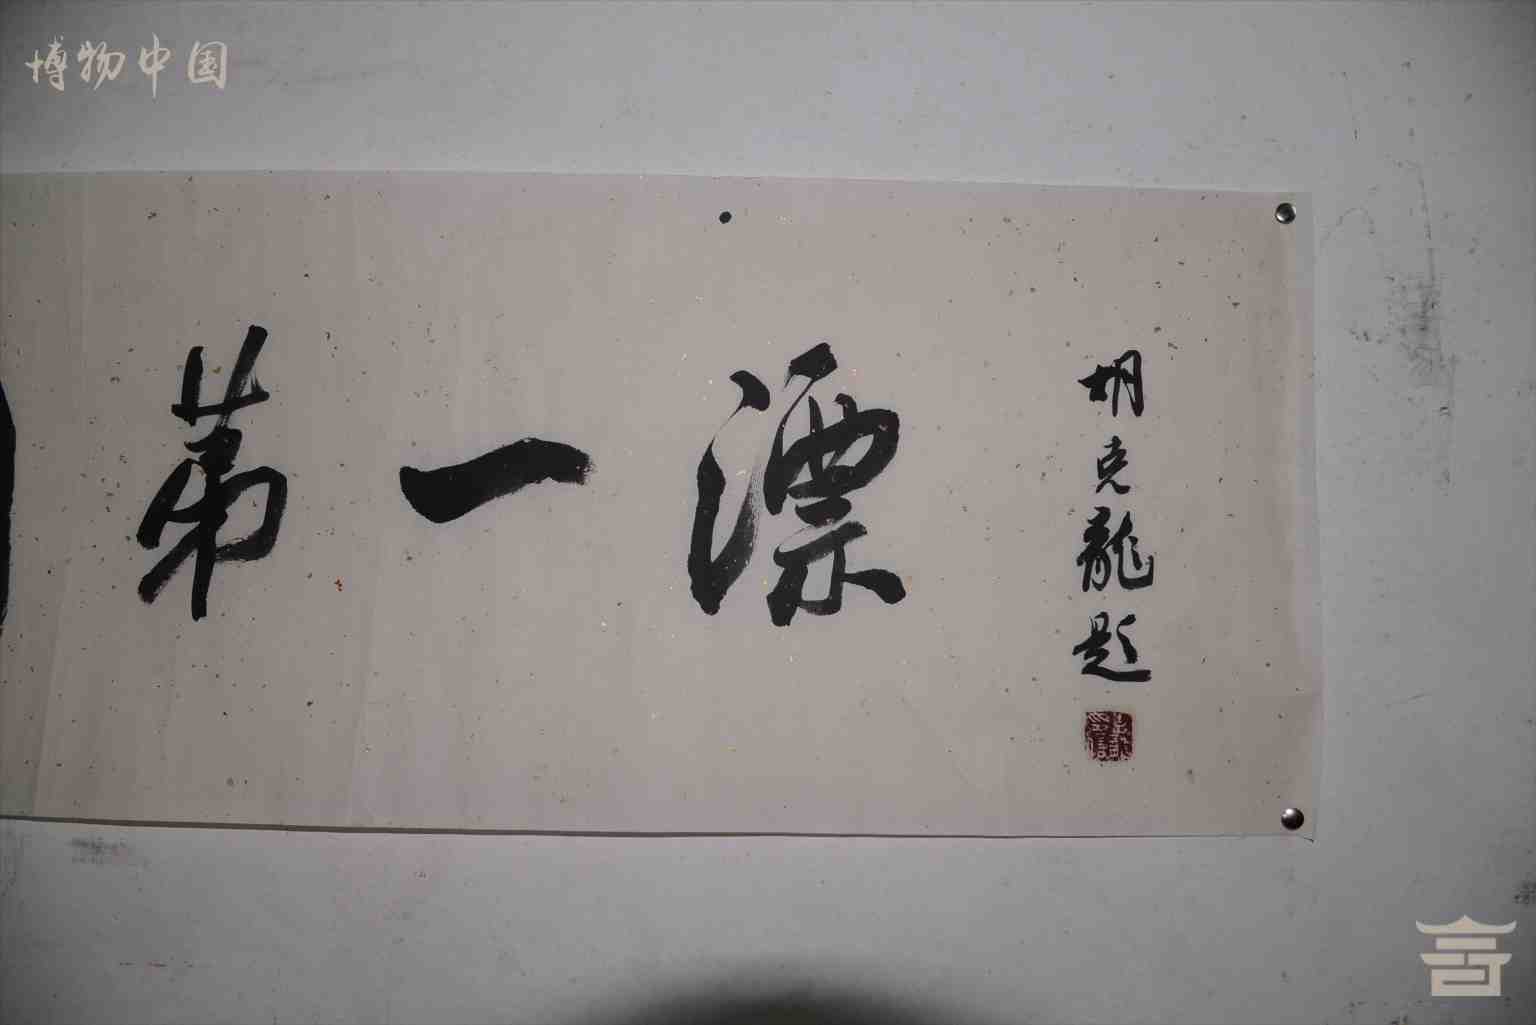 博物中国
第一漂
胡克龍题